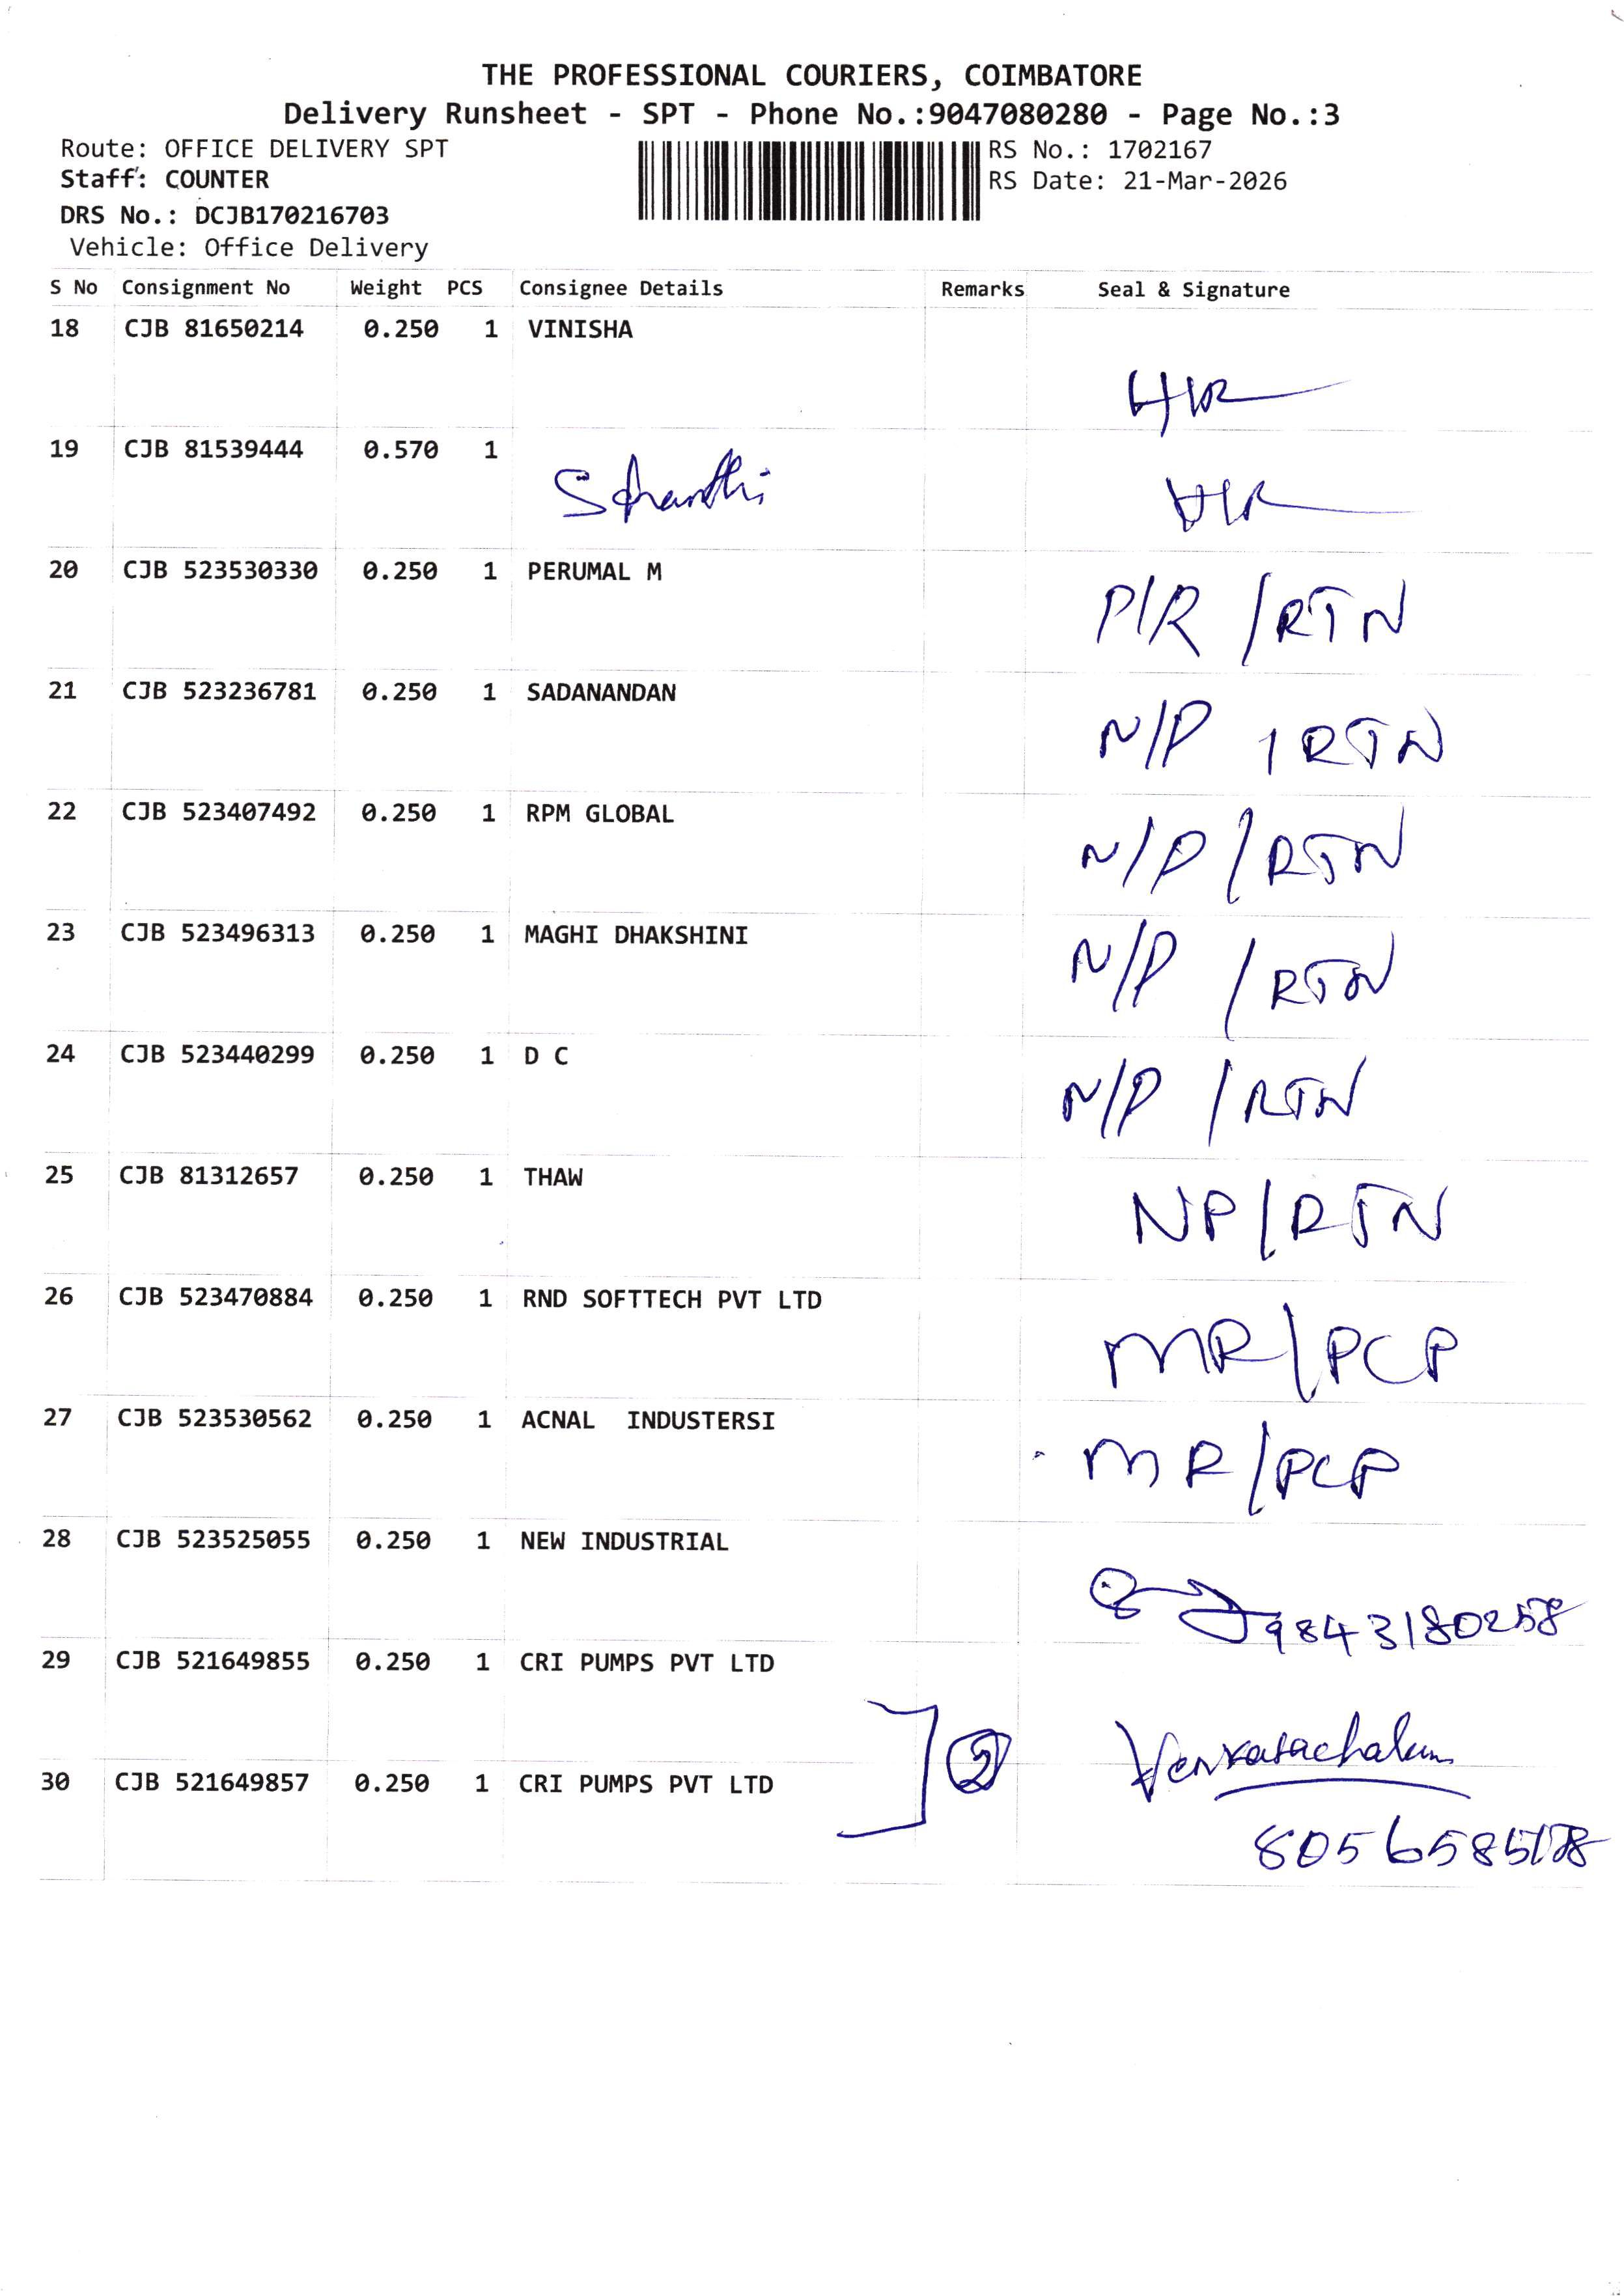 THE PROFESSIONAL COURIERS, COIMBATORE
Delivery Runsheet - SPT - Phone No.:9047080280 - Page No.:3
Route: OFFICE DELIVERY SPT
RS No.: 1702167
Staff: COUNTER
RS Date: 21-Mar-2026
DRS No.: DCJB170216703
Vehicle: Office Delivery
S No Consignment No Weight PCS Consignee Details Remarks Seal & Signature
18 CJB 81650214 0.250 1 VINISHA
19 CJB 81539444 0.570 1
20 CJB 523530330 0.250 1 PERUMAL M
P/R /RTN
21 CJB 523236781 0.250 1 SADANANDAN
N/P /RTN
22 CJB 523407492 0.250 1 RPM GLOBAL
N/P /RTN
23 CJB 523496313 0.250 1 MAGHI DHAKSHINI
N/P /RTN
24 CJB 523440299 0.250 1 D C
N/P /RTN
25 CJB 81312657 0.250 1 THAW
NP/RTN
26 CJB 523470884 0.250 1 RND SOFTTECH PVT LTD
MR/PCP
27 CJB 523530562 0.250 1 ACNAL INDUSTERSI
MR/PCP
28 CJB 523525055 0.250 1 NEW INDUSTRIAL
9843180258
29 CJB 521649855 0.250 1 CRI PUMPS PVT LTD
2 Venkatachalam
30 CJB 521649857 0.250 1 CRI PUMPS PVT LTD